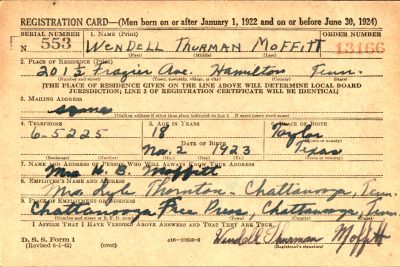 REGISTRATION CARD—(Men born on or after January 1, 1922 and on or before June 30, 1924)
SERIAL NUMBER 1. NAME (Print) ORDER NUMBER
N 553 WENDELL THURMAN MOFFITT 13166
(First) (Middle) (Last)
2. PLACE OF RESIDENCE (Print)
201½ Frazier Ave. Hamilton Tenn.
(Number and street) (Town, township, village, or city) (County) (State)
[THE PLACE OF RESIDENCE GIVEN ON THE LINE ABOVE WILL DETERMINE LOCAL BOARD
JURISDICTION; LINE 2 OF REGISTRATION CERTIFICATE WILL BE IDENTICAL]
3. MAILING ADDRESS
Same
(Mailing address if other than place indicated on line 2. If same insert word same)
4. TELEPHONE 5. AGE IN YEARS 6. PLACE OF BIRTH
6-5225 18 Taylor
DATE OF BIRTH
Nov. 2 1923 Texas
(Exchange) (Number) (Mo.) (Day) (Yr.) (State or country)
7. NAME AND ADDRESS OF PERSON WHO WILL ALWAYS KNOW YOUR ADDRESS
Mrs. H. B. Moffitt
8. EMPLOYER'S NAME AND ADDRESS
Mrs. Lyle Thornton - Chattanooga, Tenn.
9. PLACE OF EMPLOYMENT OR BUSINESS
Chattanooga Free Press, Chattanooga, Tenn.
(Number and street or R. F. D. number) (Town) (County) (State)
I AFFIRM THAT I HAVE VERIFIED ABOVE ANSWERS AND THAT THEY ARE TRUE.
D. S. S. Form 1
(Revised 6-1-42) (over) Wendell Thurman Moffitt